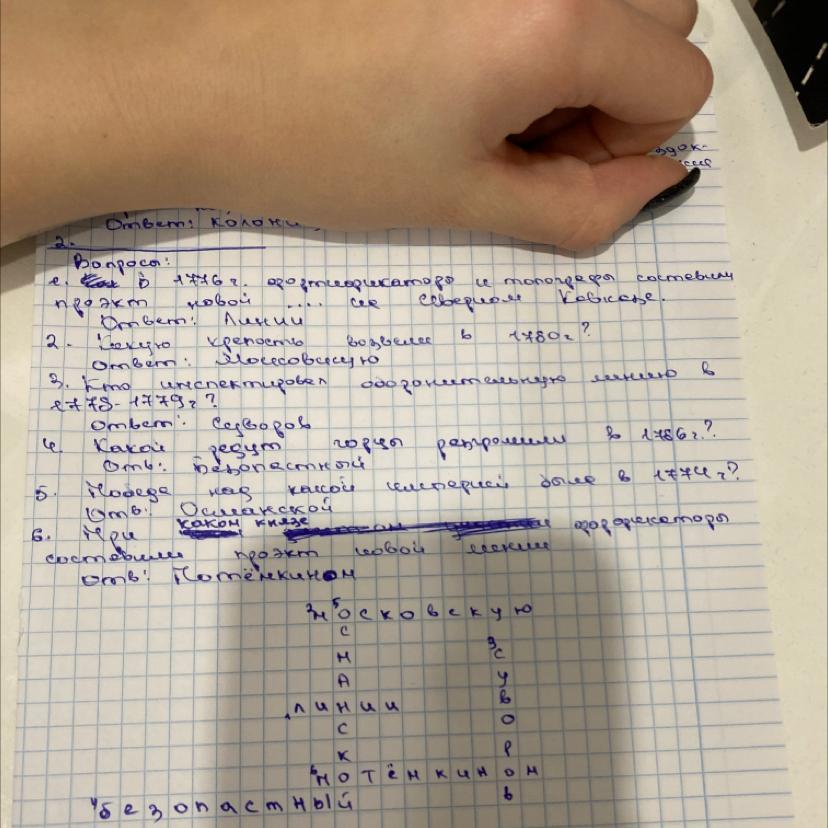 Ответ: колони
2.
Вопросы:
1. В 1776 г. фортификаторы и топографы составили
проэкт новой .... на северном Кавказе.
Ответ: Линии
2. Какую крепость возвели в 1780г?
Ответ: Московскую
3. Кто инспектировал оборонительную линию в
1778-1779г?
Ответ: Суворов
4. Какой редут горцы разгромили в 1786г.?
Отв: Безопастный
5. Победа над какой империей была в 1774г?
Отв: Османской
6. При каком князе фортификаторы
составили проэкт новой линии
Отв: Потёмкином
2 Московскую
5 Османской
3 Суворов
1 линии
6 Потёмкином
4 безопастный